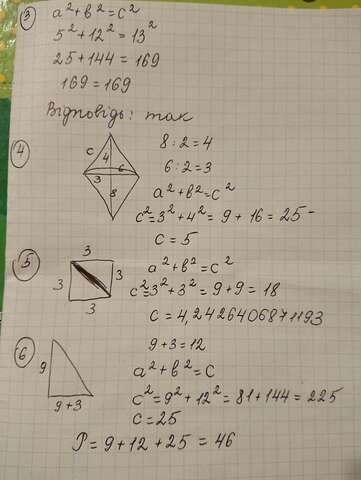 3
a²+в²=c²
5²+12²=13²
25+144=169
169=169
Відповідь: так
4
c
4
6
3
8
8:2=4
6:2=3
a²+в²=c²
c²=3²+4²=9+16=25
c=5
5
3
3
3
3
a²+в²=c²
c²=3²+3²=9+9=18
c=4,2426406871193
6
9
9+3
9+3=12
a²+в²=c
c²=9²+12²=81+144=225
c=25
P=9+12+25=46